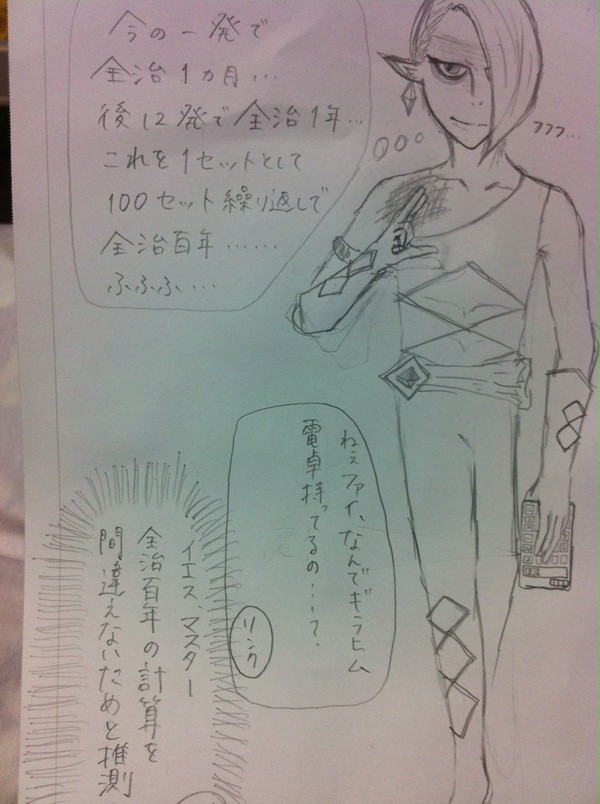 今の一発で
全治1カ月…
後12発で全治1年…
これを1セットとして
100セット繰り返しで
全治百年……
ふふふ…
フフフ…
ねぇファイ、なんでギラヒム
電卓持ってるの…？
リンク
イエス、マスター
全治百年の計算を
間違えないためと推測